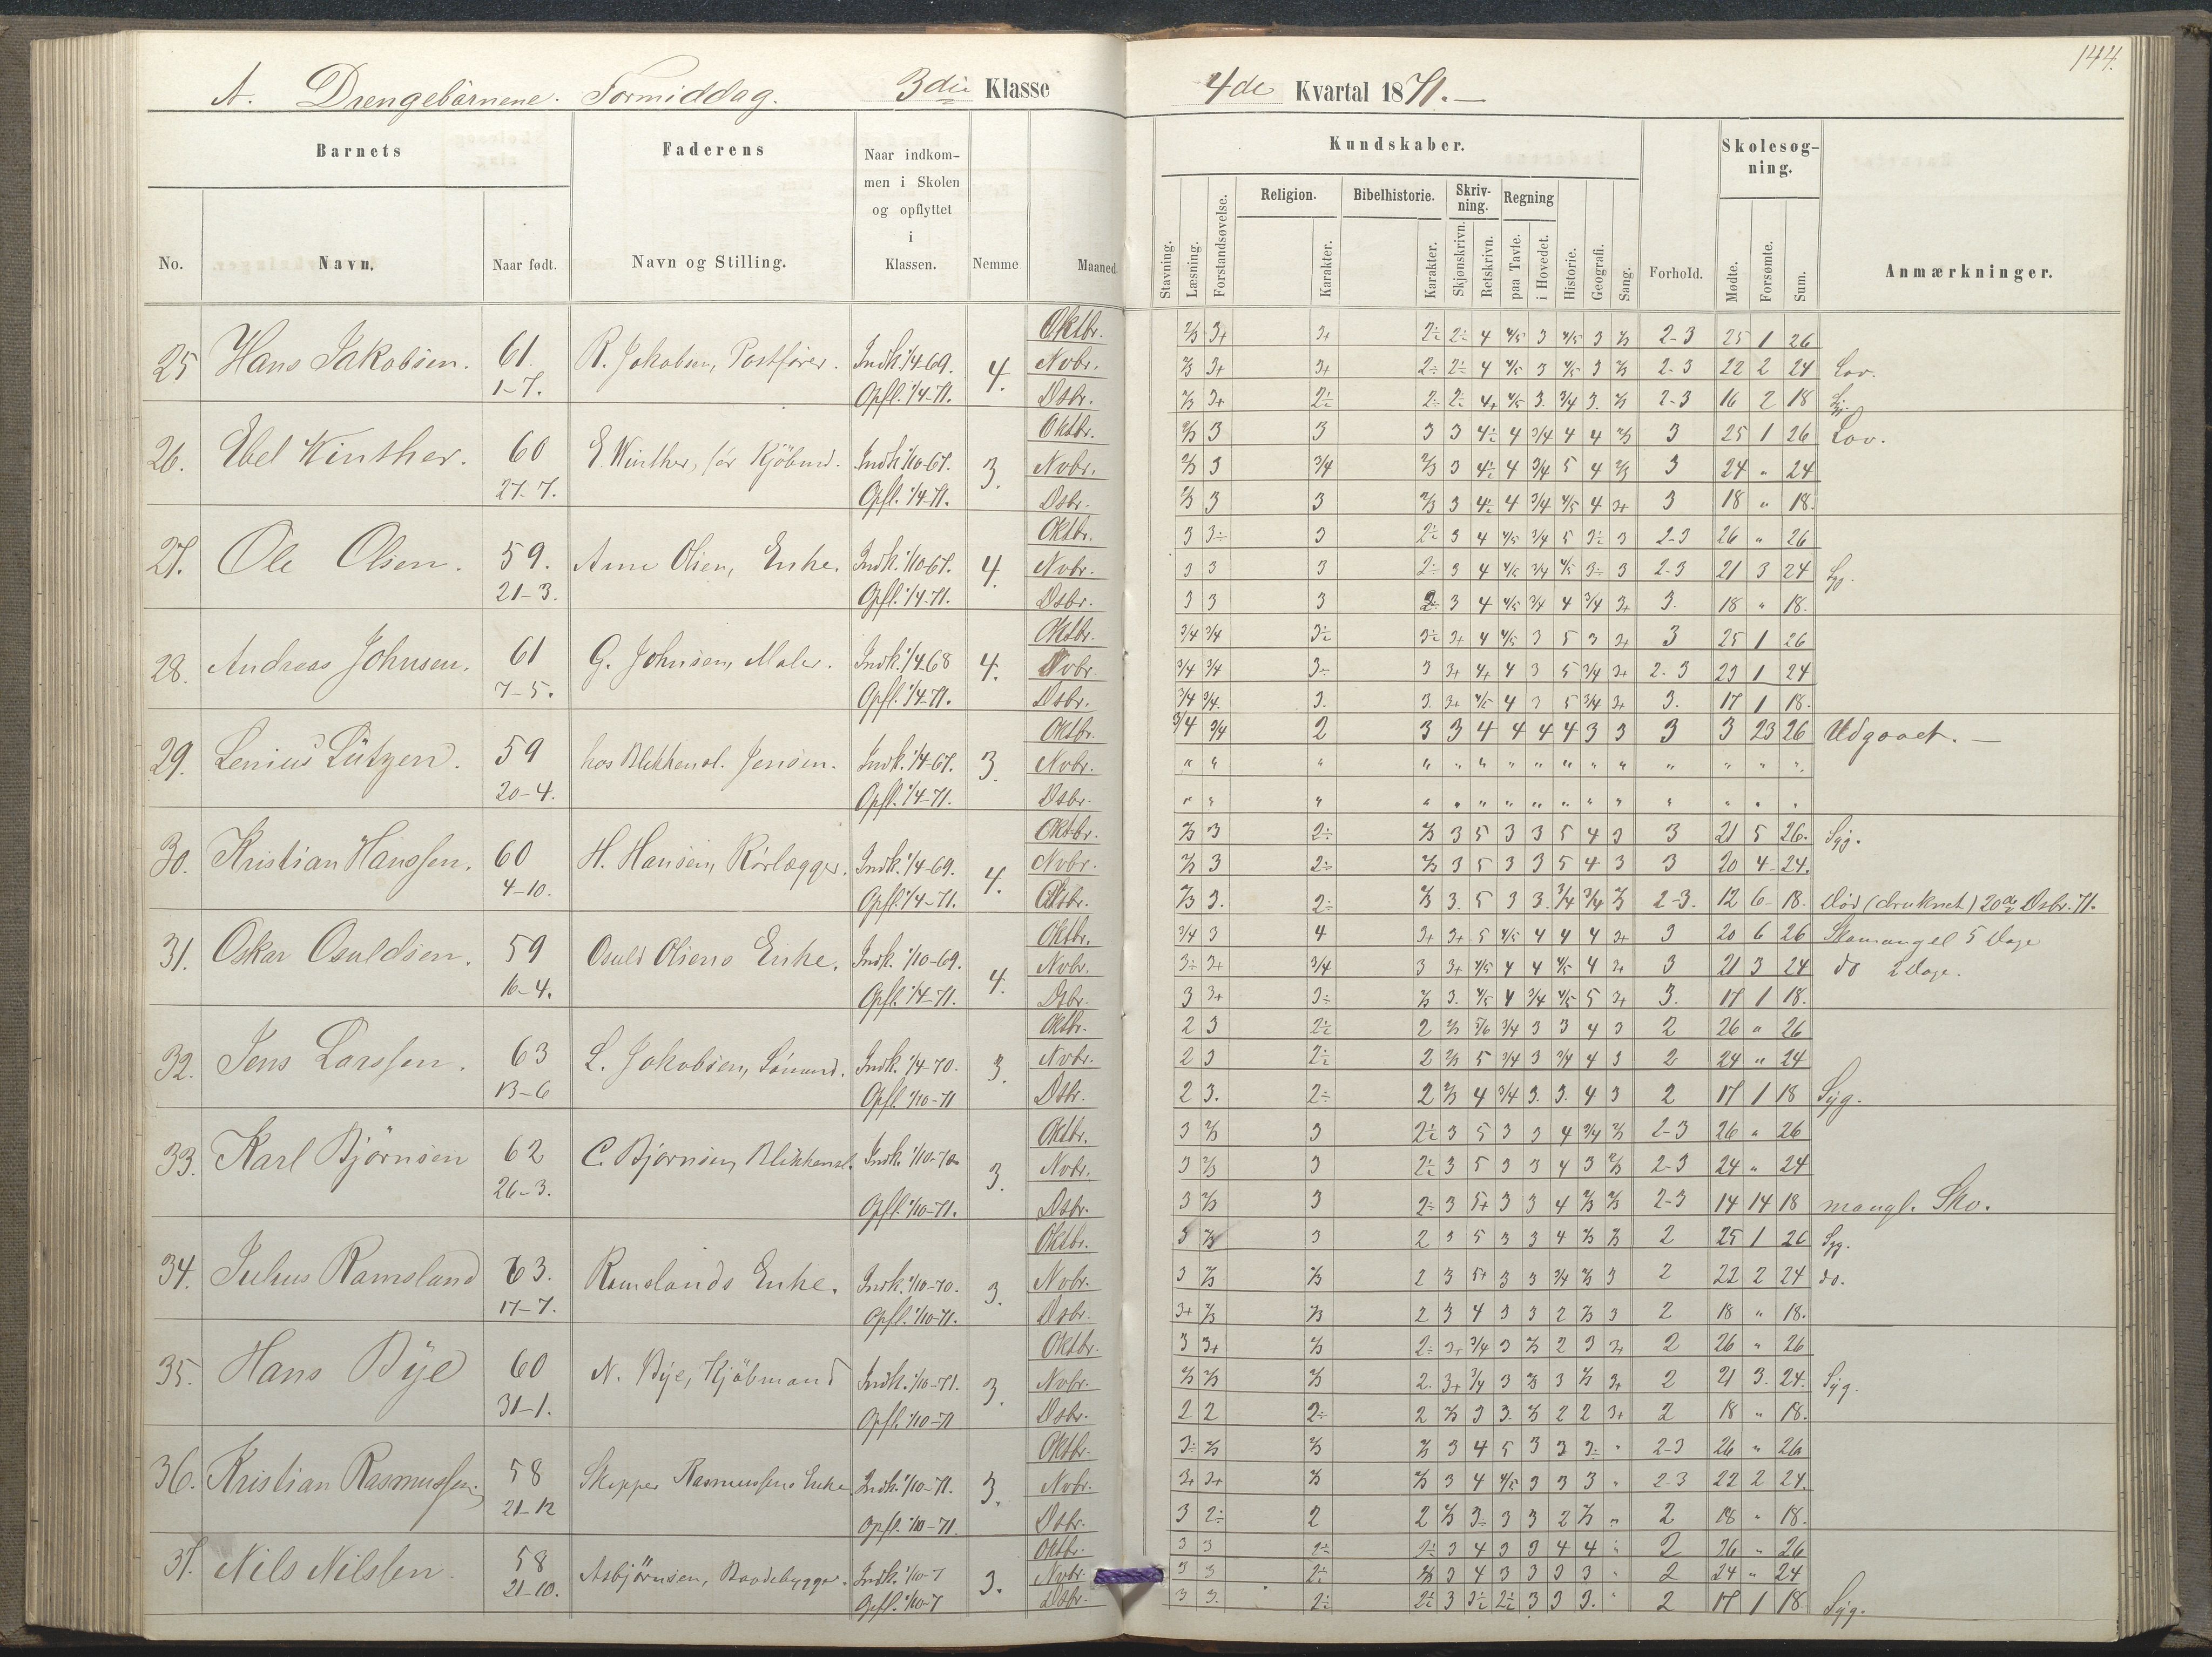 144.
A. Drengebörnene. Formiddag. 3die Klasse 4de Kvartal 1871.—
Barnets Faderens Naar indkommen i Skolen og opflyttet i Klassen. Nemme Maaned. Kundskaber. Forhold. Skolesøgning. Anmærkninger.
No. Navn. Naar født. Navn og Stilling.
Stavning. Læsning. Forstandsøvelse. Religion. Karakter. Bibelhistorie. Karakter. Skrivning. Skjønskrivn. Retskrivn. Regning paa Tavle. i Hovedet. Historie. Geografi. Sang. Mødte. Forsømte. Sum.
25 Hans Jakobsen. 61. 1-7. R. Jakobsen, Postfører. Indk. 1/4 69. Opfl. 1/4-71. 4.
Oktbr. 2/3 3+ 3+ 2÷ 2÷ 4 4/5 3 4/5 3 2/3 2-3 25 1 26
Nvbr. 2/3 3+ 3+ 2÷ 2÷ 4 4/5 3 4/5 3 2/3 2-3 22 2 24 Lov.
Dsbr. 2/3 3+ 2÷ 2÷ 2÷ 4+ 4/5 3. 3/4 3. 2/3 2-3 16 2 18
26. Ebel Winther. 60 27-7. E. Winther, før Kjöbmd. Indk. 1/10-67. Opfl. 1/4-71. 3.
Oktbr. 2/3 3 3 3 3 4÷ 4 3/4 4 4 2/3 3 25 1 26 Lov.
Nvbr. 2/3 3 3/4 2/3 3 4÷ 4 3/4 5 4 2/3 3 24 " 24
Dsbr. 2/3 3 3 2/3 3 4÷ 4 3/4 4/5 4 3+ 3 18 " 18.
27. Ole Olsen. 59. 21-3. Anne Olsen, Enke. Indk. 1/10 67. Opfl. 1/4-71. 4.
Oktbr. 3 3÷ 3 2÷ 3 4 4/5 3/4 5 3÷ 3 2-3 26 " 26
Nvbr. 3 3 3 2÷ 3 4 4/5 3/4 4/5 3÷ 3 2-3 21 3 24 Syg.
Dsbr. 3 3 3 2÷ 3 4 4/5 3/4 4 3/4 3+ 3. 18 " 18.
28. Andreas Johnsen. 61 7-5. G. Johnsen, Maler. Indk. 1/4 68 Opfl. 1/4-71. 4.
Oktbr. 3/4 3/4 3÷ 3÷ 3+ 4 4/5 3 5 3 3+ 3 25 1 26
Nvbr. 3/4 3/4 3÷ 3 3+ 4+ 4 3 5 3/4 3+ 2-3 23 1 24
Dsbr. 3/4 3/4. 3. 3. 3+ 4/5 4 3 5 3/4 3+ 3. 17 1 18.
29. Lenius Lützen. 59 20-4. hos Blikkensl. Jensen. Indk. 1/4-67. Opfl. 1/4-71. 3.
Oktbr. 3/4 3/4 2 3 3 4 4 4 4 3 3 3 3 23 26 Udgaaet.—
Nvbr. " " " " " " " " " " " " " " "
Dsbr. " " " " " " " " " " " " " " "
30. Kristian Hanssen. 60 4-10. H. Hansen, Rörlægger. Indk. 1/4-69. Opfl. 1/4-71. 4.
Oktbr. 2/3 3 2÷ 2/3 3 5 3 3 5 4 3 3 21 5 26. Syg.
Nvbr. 2/3 3 2÷ 2/3 3 5 3 3 5 4 3 3 20 4 24.
Dsbr. 2/3 3. 2÷ 2/3 3. 5 3 3. 3/4 3/4 2/3 2-3. 12 6 18. Död (druknet) 20de Dsbr. 71.
31. Oskar Osuldsen. 59 16-4. Osuld Olsens Enke. Indk. 1/10-69. Opfl. 1/4-71. 4.
Oktbr. 3/4 3 4 3+ 3+ 5 4/5 4 4 4 3+ 3 20 6 26 Skomangel 5 Dage
Nvbr. 3÷ 3+ 3/4 3 3+ 4/5 4 4 4/5 4 3+ 3 21 3 24 do 2 Dage.
Dsbr. 3 3+ 3÷ 2/3 3. 4/5 4 3/4 4/5 5 3+ 3. 17 1 18.
32. Jens Larssen. 63 13-6 L. Jakobsen, Sömand. Indk. 1/4-70. Opfl. 1/10-71 3.
Oktbr. 2 3 2÷ 2 2/3 5/6 3/4 3 3 4 3 2 26 " 26
Nvbr. 2 3 2÷ 2 2/3 5 3/4 3 3/4 4 3 2 24 " 24
Dsbr. 2 3. 2÷ 2 2/3 4 3/4 3. 3. 4 3 2 17 1 18 Syg.
33. Karl Björnsen 62 26-3. C. Björnsen, Blikkensl. Indk. 1/10-70. Opfl. 1/10-71. 3.
Oktbr. 3 2/3 3 2÷ 3 5 3 3 4 3/4 2/3 2-3 26 " 26
Nvbr. 3 2/3 3 2÷ 3 5 3 3 4 3 2/3 2-3 24 " 24
Dsbr. 3 2/3 3 2÷ 3 5+ 3 3 4 2/3 2/3 2-3 14 14 18 mangl. Sko.
34. Julius Ramsland 63. 17-7. Ramslands Enke. Indk. 1/10-70. Opfl. 1/10-71. 3.
Oktbr. 3 2/3 3 2 3 5 3 3 4 2/3 2/3 2 25 1 26 Syg.
Nvbr. 3 2/3 2/3 2 3 5+ 3 3 3/4 2/3 3 2 22 2 24 do.
Dsbr. 3+ 2/3 2/3 2 3 4 3 3 2 2/3 3 2 18 " 18.
35. Hans Bye 60 31-1. N. Bye, Kjöbmand Indk. 1/10-71. Opfl. 1/10-71 3.
Oktbr. 3 3+ 2/3 2÷ 3+ 3/4 3 2/3 2 3 3+ 2 26 " 26
Nvbr. 2/3 2/3 2/3 2. 3+ 3/4 3 2/3 3 2/3 3+ 2 21 3. 24. Syg.
Dsbr. 2 2 2÷ 2 2/3 3 3. 2/3 2 2 3+ 2 18 " 18.
36. Kristian Rasmussen. 58 21-12 Skipper Rasmussens Enke. Indk. 1/10-71. Opfl. 1/10-71. 3.
Oktbr. 3÷ 2/3 2/3 2/3 3 4 5 3 3 3÷ " 2-3 26 " 26
Nvbr. 3+ 3+ 2/3 2/3 3 4 4/5 3 3 3 " 2-3 22 2 24.
Dsbr. 3 2÷ 2 2 2/3 3÷ 3 3 2 2/3 " 2 18 " 18.
37. Nils Nilssen. 58 21-10. Asbjörnsen, Baadebygger. Indk. 1/10-7 Opfl. 1/10-7 3.
Oktbr. 3 3 2÷ 2÷ 3 4 3 3 4 4 " 2 26 " 26
Nvbr. 3 3 2÷ 2/3 3 4 3 3 3 3 " 2 24 " 24
Dsbr. 3 3. 2÷ 2÷ 3 3÷ 2÷ 3 3 3. " 2 17 1 18 Syg.